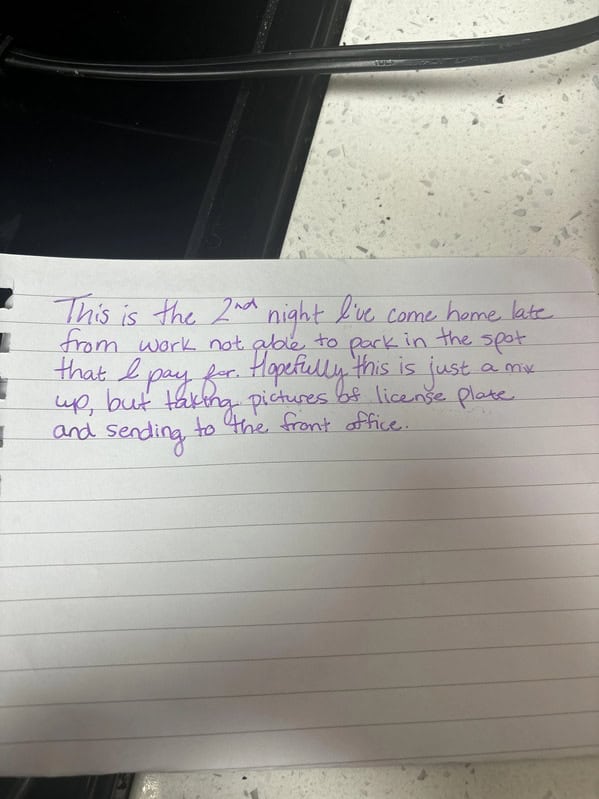 This is the 2nd night I've come home late
from work not able to park in the spot
that I pay for. Hopefully this is just a mix
up, but taking pictures of license plate
and sending to the front office.